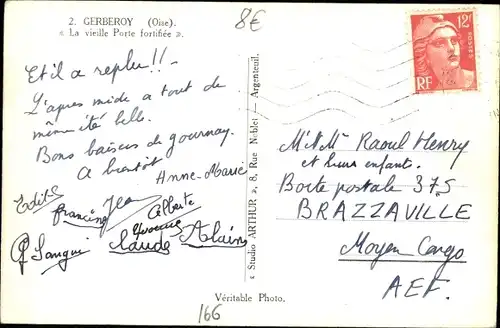 2. GERBEROY (Oise).
« La vieille Porte fortifiée ».
8€
12F
POSTES
RF
Et il a replu!!-
L'après midi a tout de
même été belle.
Bons baisers de gournay.
A bientôt
Anne-Marie
Edith
francine Jean Alberte
Yvonne
Claude Alain
« Studio ARTHUR », 8, Rue Noblet — Argenteuil.
M. et Me Raoul Henry
et leurs enfants.
Boite postale 375
BRAZZAVILLE
Moyen Congo
AEF.
Véritable Photo.
166